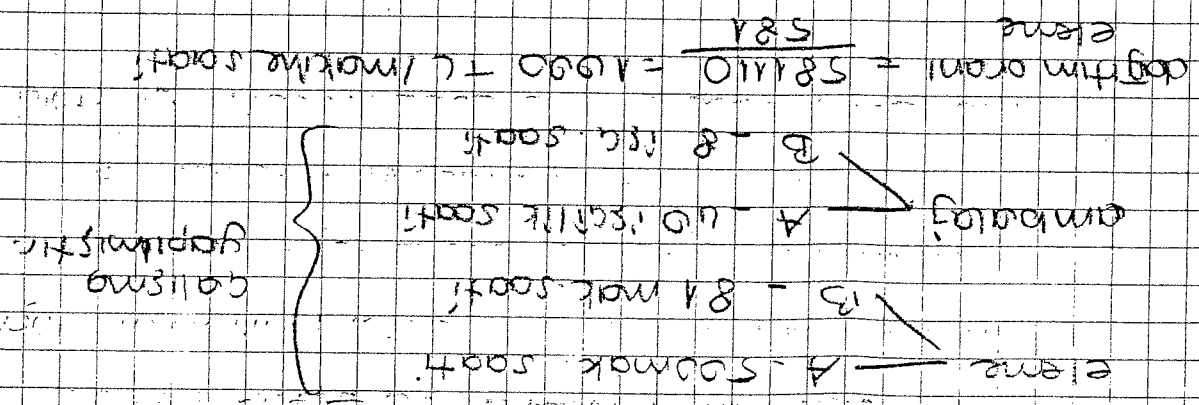 eleme — A - 500 mak saati
B - 81 mak saati
ambalaj — A - 40 işçilik saati
B - 8 işç. saati
çalışma
yapılmıştır
dağıtım oranı = 58110 / 581 = 1000 TL/makine saati
eleme